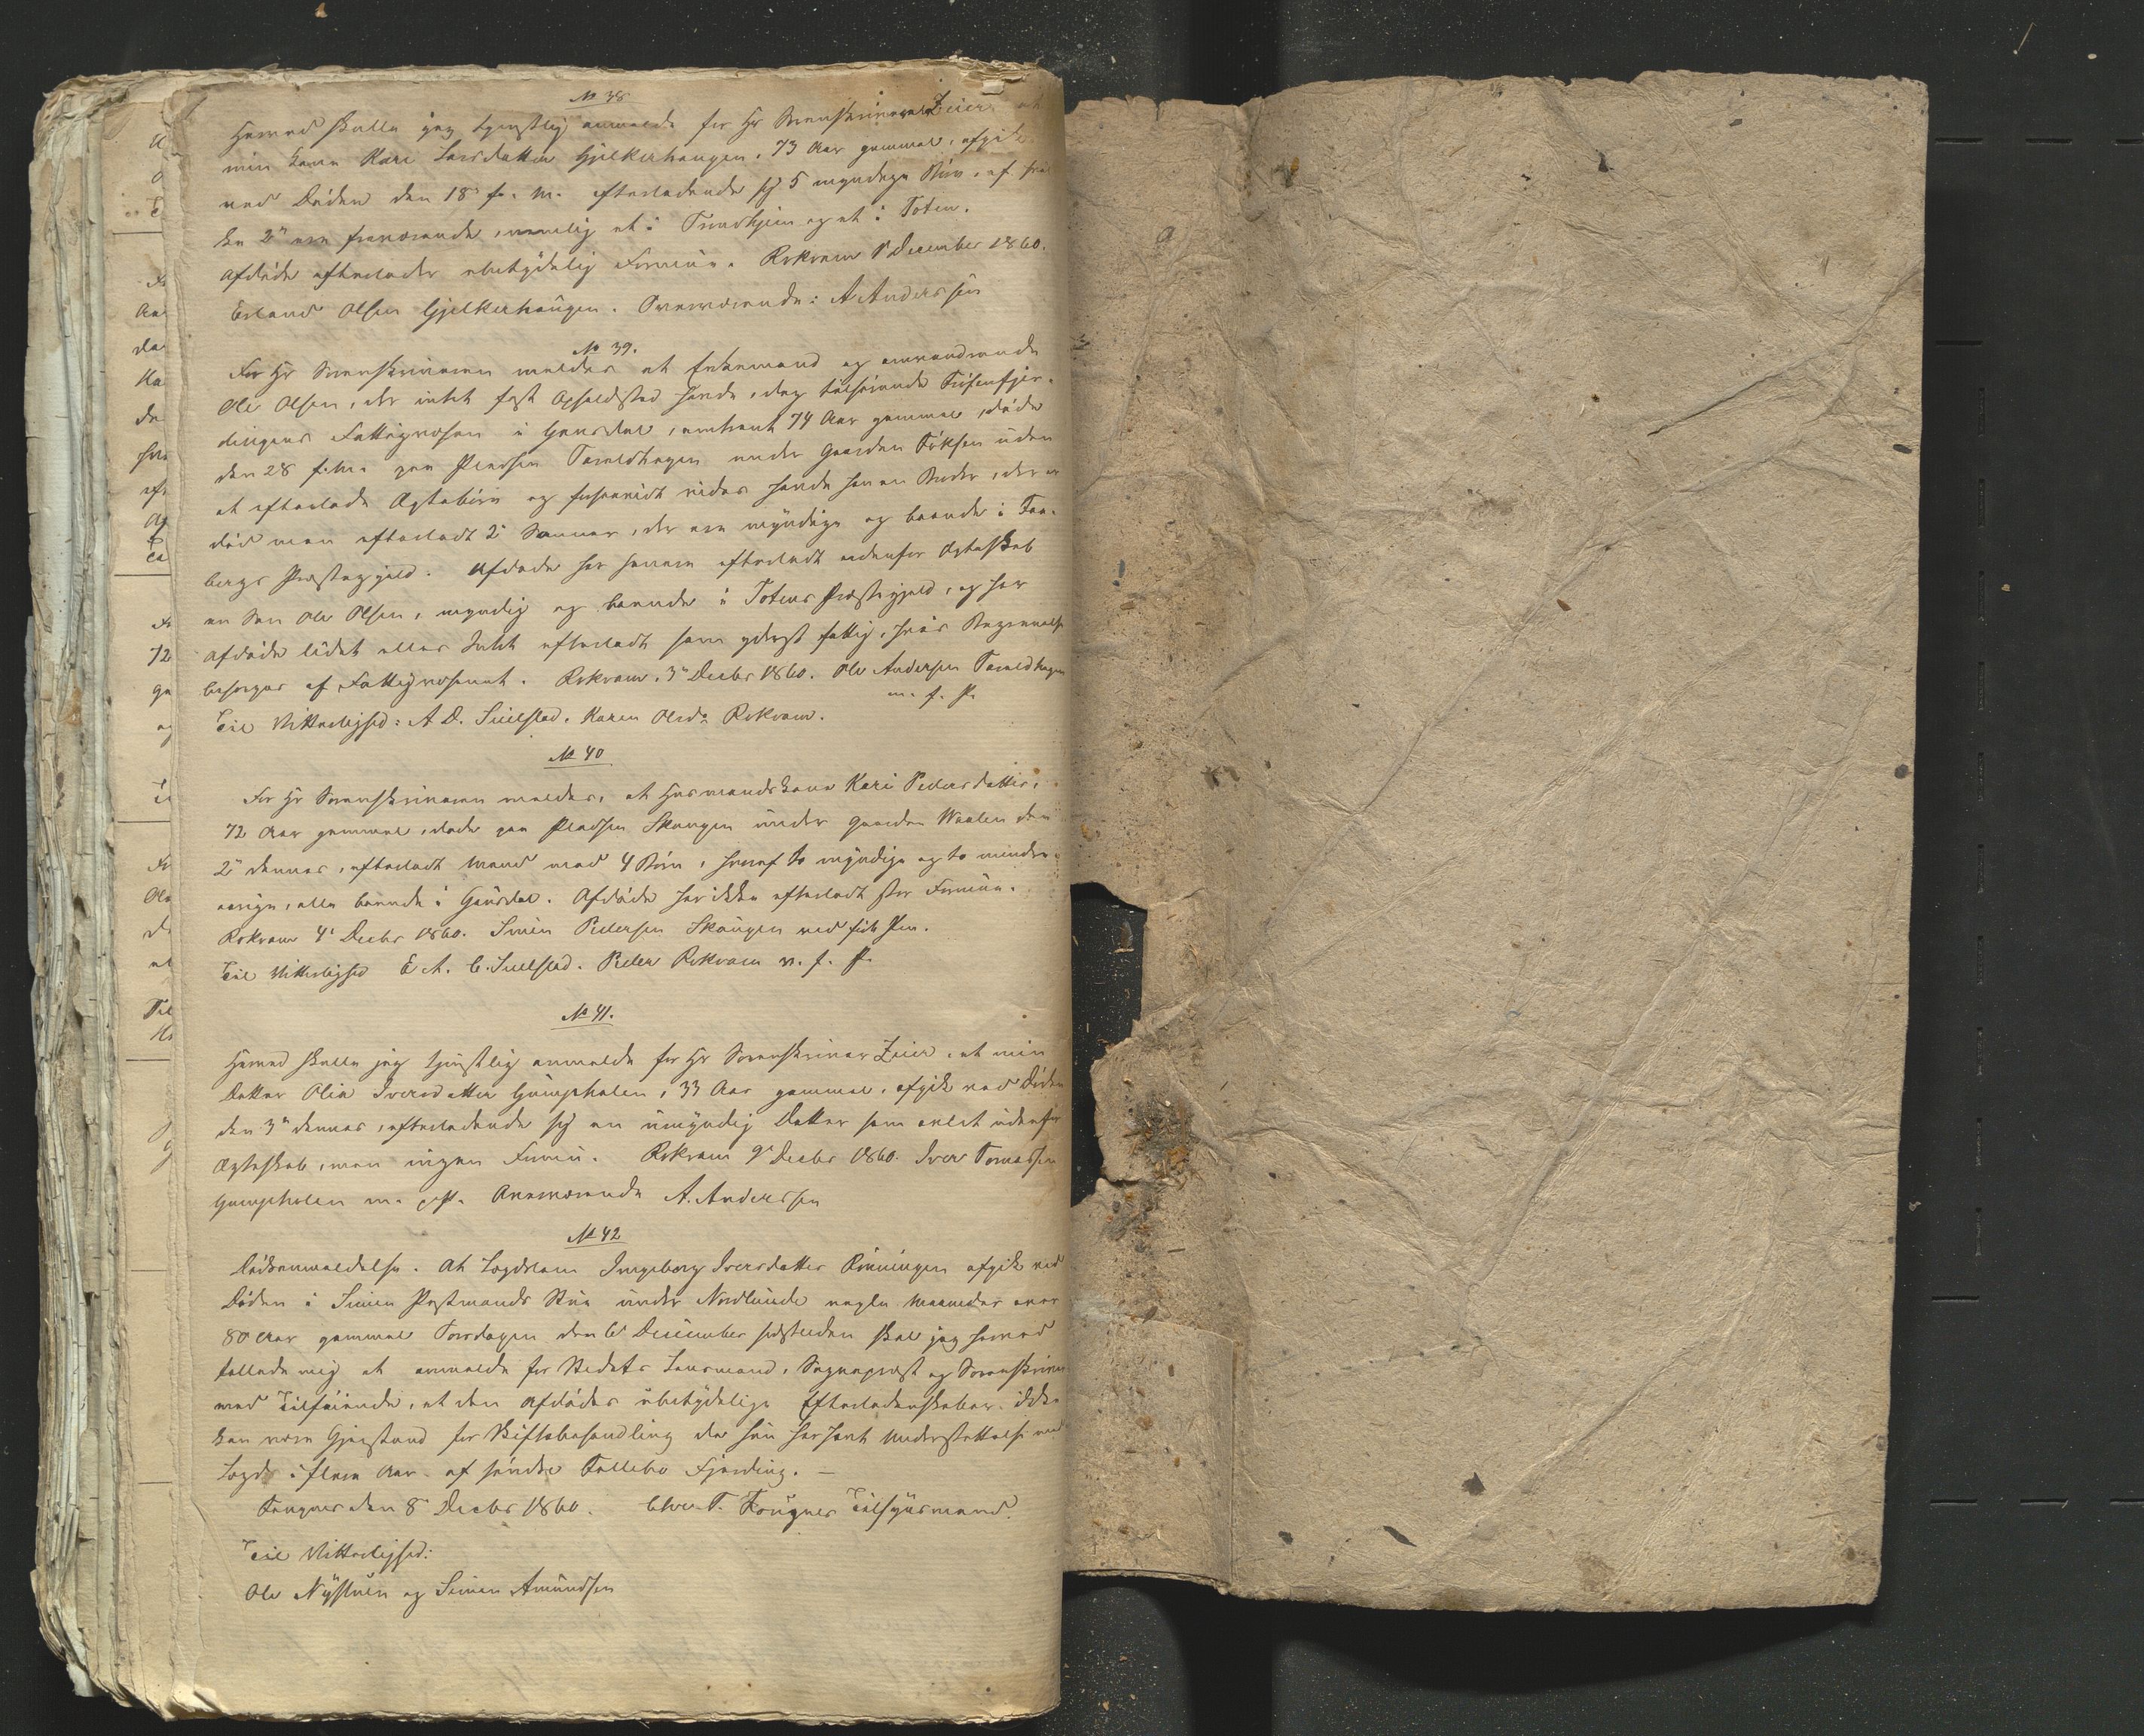 No 38
Herved skulle jeg tjenstlig anmelde for Hr Sorenskriver Zeier at
min Kone Kari Larsdatter Gjelkerhaugen, 73 Aar gammel, afgik
ved Døden den 18 f. M. efterladende sig 5 myndige Børn, af hvil
ke 2de ere fraværende, nemlig et i Trondhjem og et i Toten.
Afdøde efterlader ubetydelig Formue. Rokvam 1 December 1860.
Erland Olsen Gjelkerhaugen. Overværende: A Anderssen
No 39.
For Hr Sorenskriveren meldes at Enkemand og omvandrende
Ole Olsen, der intet fast Opholdsted havde, dog tilhørende
dingens Fattigvæsen i Gausdal, omtrent 74 Aar gammel, døde
den 28 f. M. paa Pladsen Taraldhagen under Gaarden Fiksen uden
at efterlade Ægtebørn og forsaavidt vides havde han en Broder, der er
død men efterladt 2 Sønner, der ere myndige og boende i Faa-
bergs Præstegjeld. Afdøde har herom efterladt udenfor Ægteskab
en Søn Ole Olsen, myndig og boende i Totens Præstegjeld, og har
afdøde lidet eller Intet efterladt som yderst fattig, hvis Begravelse
besørges af Fattigvæsenet. Rokvam, 3 Decbr 1860. Ole Andersen Taraldhagen
m. f. P.
Til Vitterlighed: A. D. Suilstad. Karen Olsdr Rokvam.
No 40
For Hr Sorenskriveren meldes, at Husmandskone Kari Pedersdatter,
72 Aar gammel, døde paa Pladsen Skougen under Gaarden Waalen den
2 dennes, efterladt Mand med 4 Børn, hvoraf to myndige og to minder-
aarige, alle boende i Gausdal. Afdøde har ikke efterladt stor Formue.
Rokvam 4 Decbr 1860. Simen Pedersen Skougen ved ført Pen.
Til Vitterlighed E. A. C. Suilstad. Peder Rokvam m. f. P.
No 41.
Herved skulle jeg tjenstlig anmelde for Hr Sorenskriver Zeier, at min
Datter Olia Iversdatter Gumpholen, 33 Aar gammel, afgik ved Døden
den 3 dennes, efterladende sig en umyndig Datter som avlet udenfor
Ægteskab, men ingen Formue. Rokvam 9 Decbr 1860. Iver Tomassen
Gumpholen m. P. Overværende A. Anderssen
No 42
Dødsanmeldelse. At Lægdslem Ingeborg Iversdatter Rønningen afgik ved
Døden i Simen Postmands Stue under Nordlunde nogle Maaneder over
80 Aar gammel Torsdagen den 6 December sidstleden skal jeg herved
tillade mig at anmelde for Stedets Lensmand, Sognepræst og Sorenskriver
med Tilføiende, at den Afdødes ubetydelige Efterladenskaber ikke
kan være Gjenstand for Skiftebehandling da hun har havt Understøttelse ved
Lægd i flere Aar af søndre Follebo Fjerding. —
Fougner den 8 Decbr 1860. T. Fougner Tilsynsmand.
Til Vitterlighed:
Ole Nystuen og Simen Amundsen